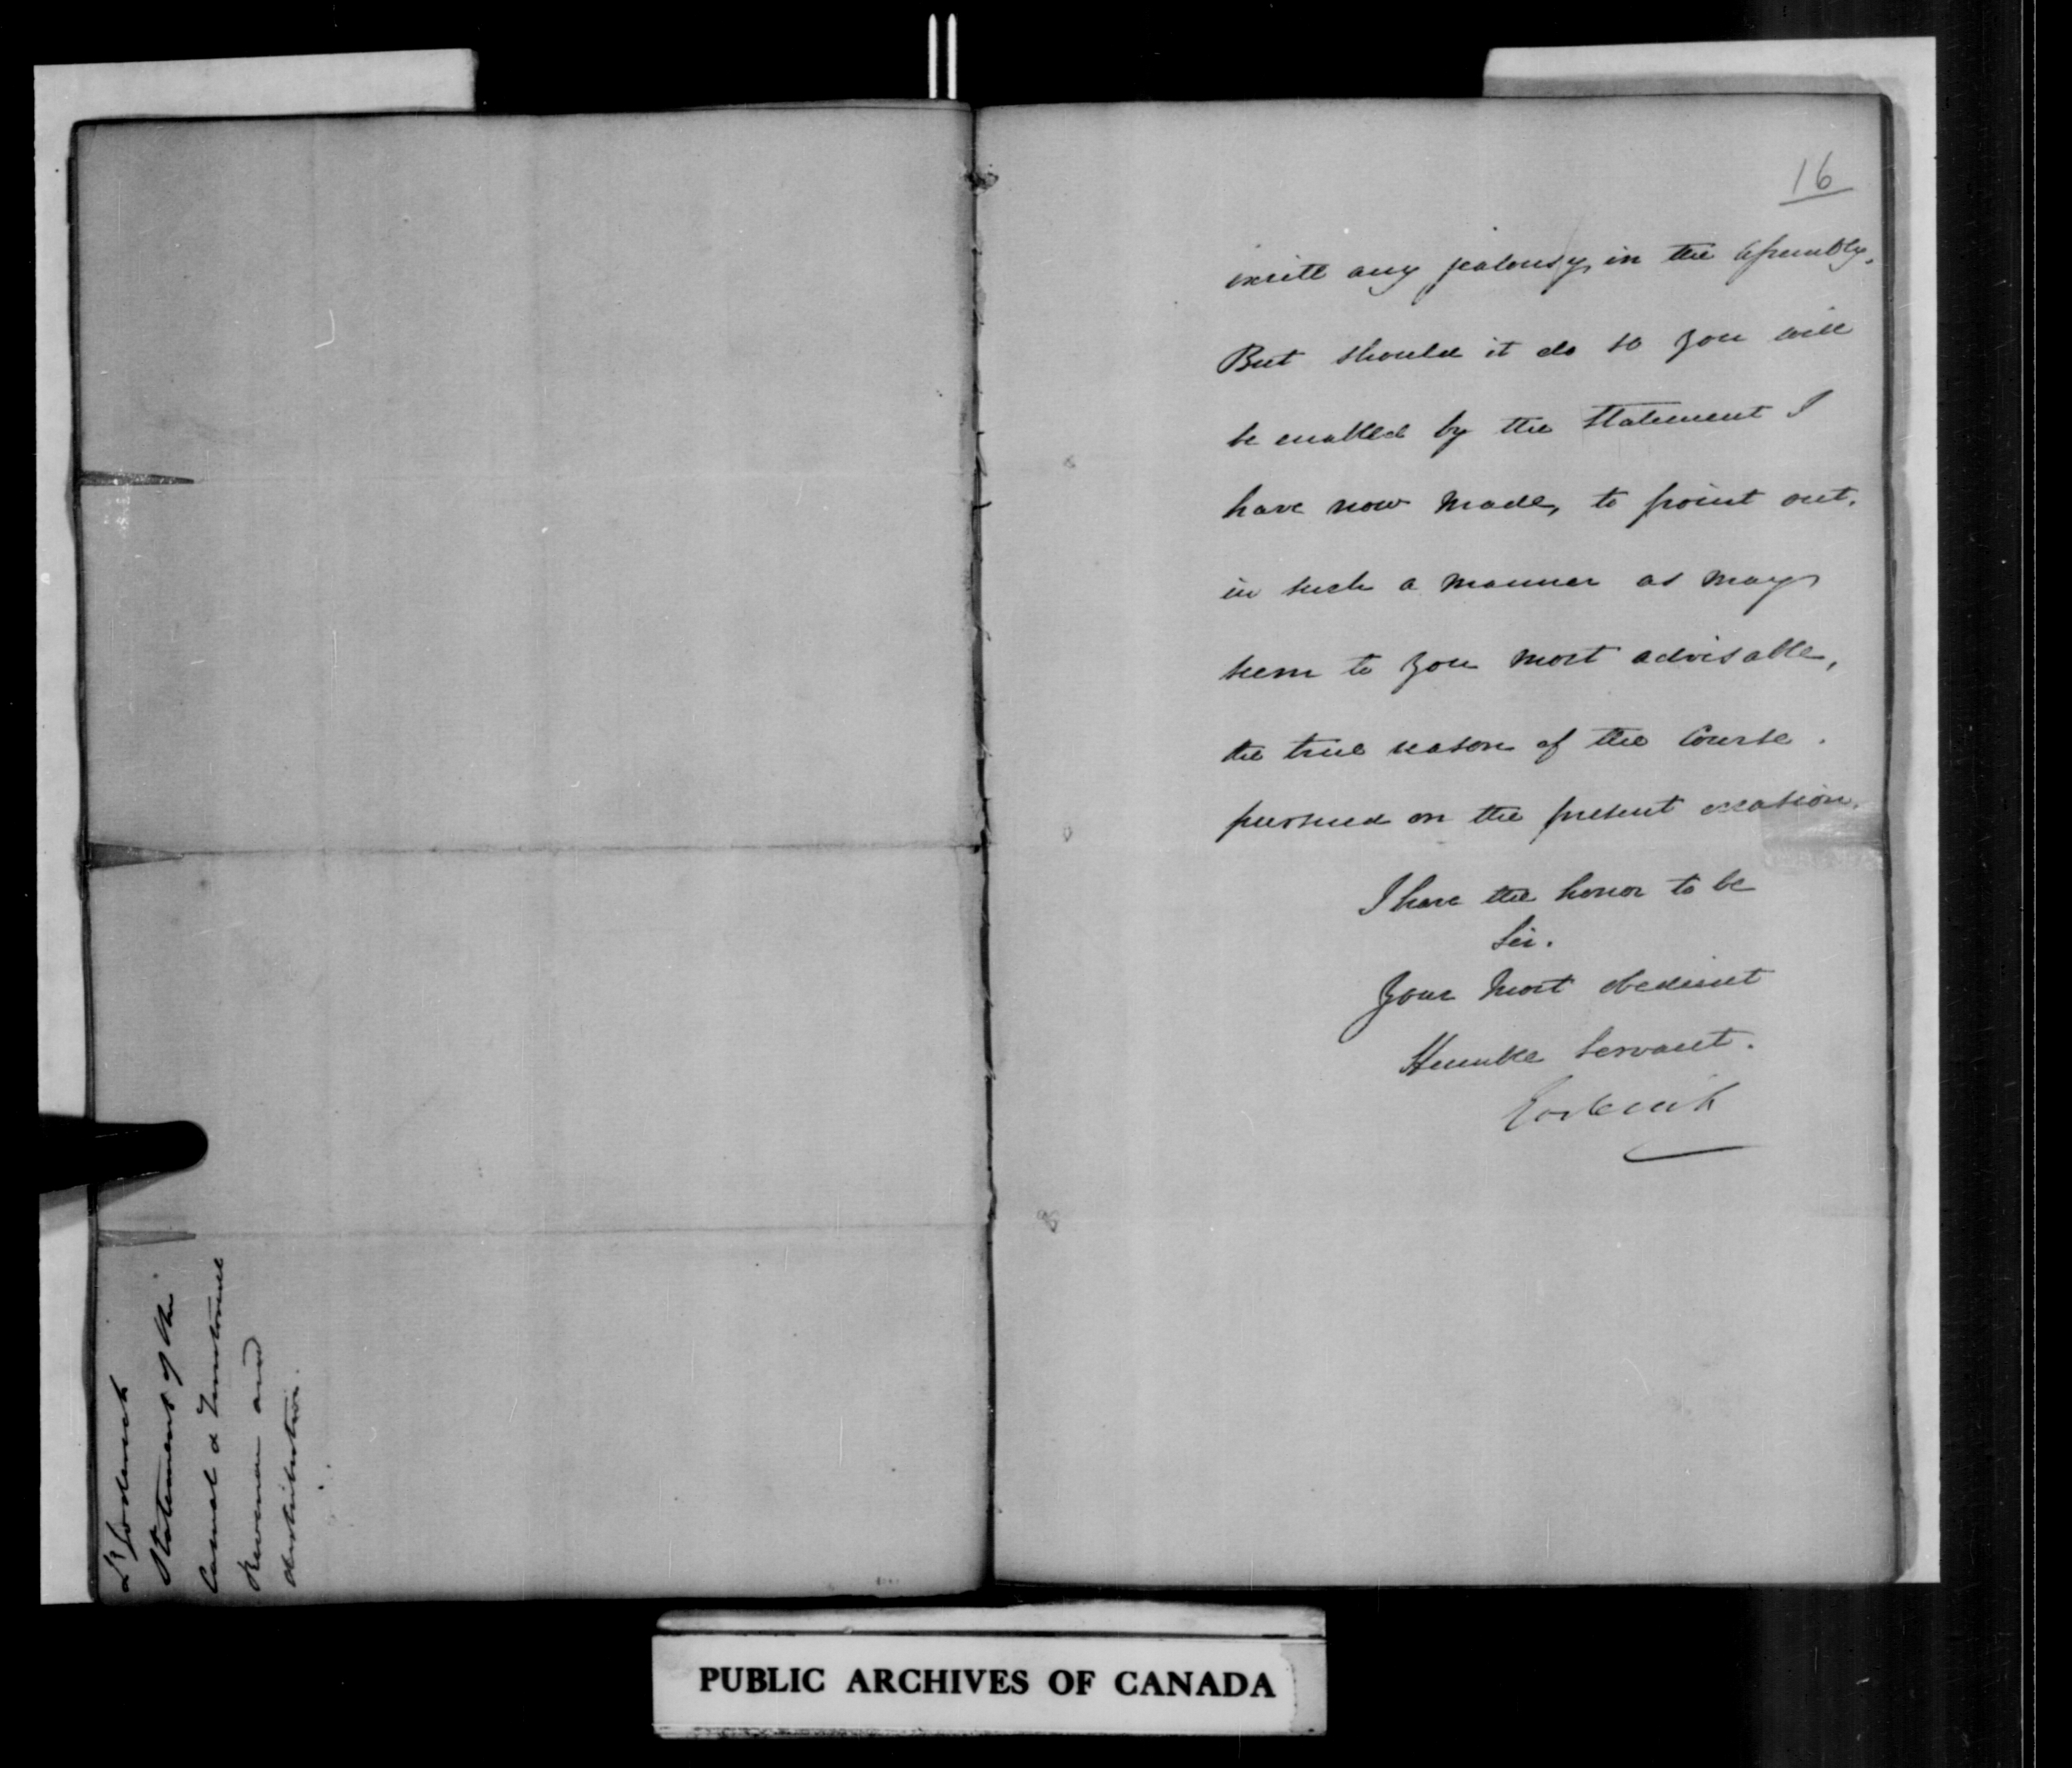 Ld Goderich
Statement of the
Casual & Territorial
Revenue and
distribution.
16
excite any jealousy in the Assembly.
But should it do so you will
be enabled by the Statement I
have now made, to point out,
in such a manner as may
seem to you most advisable,
the true reason of the Course
pursued on the present occasion.
I have the honor to be
Sir.
Your Most obedient
Humble Servant.
Goderich
PUBLIC ARCHIVES OF CANADA